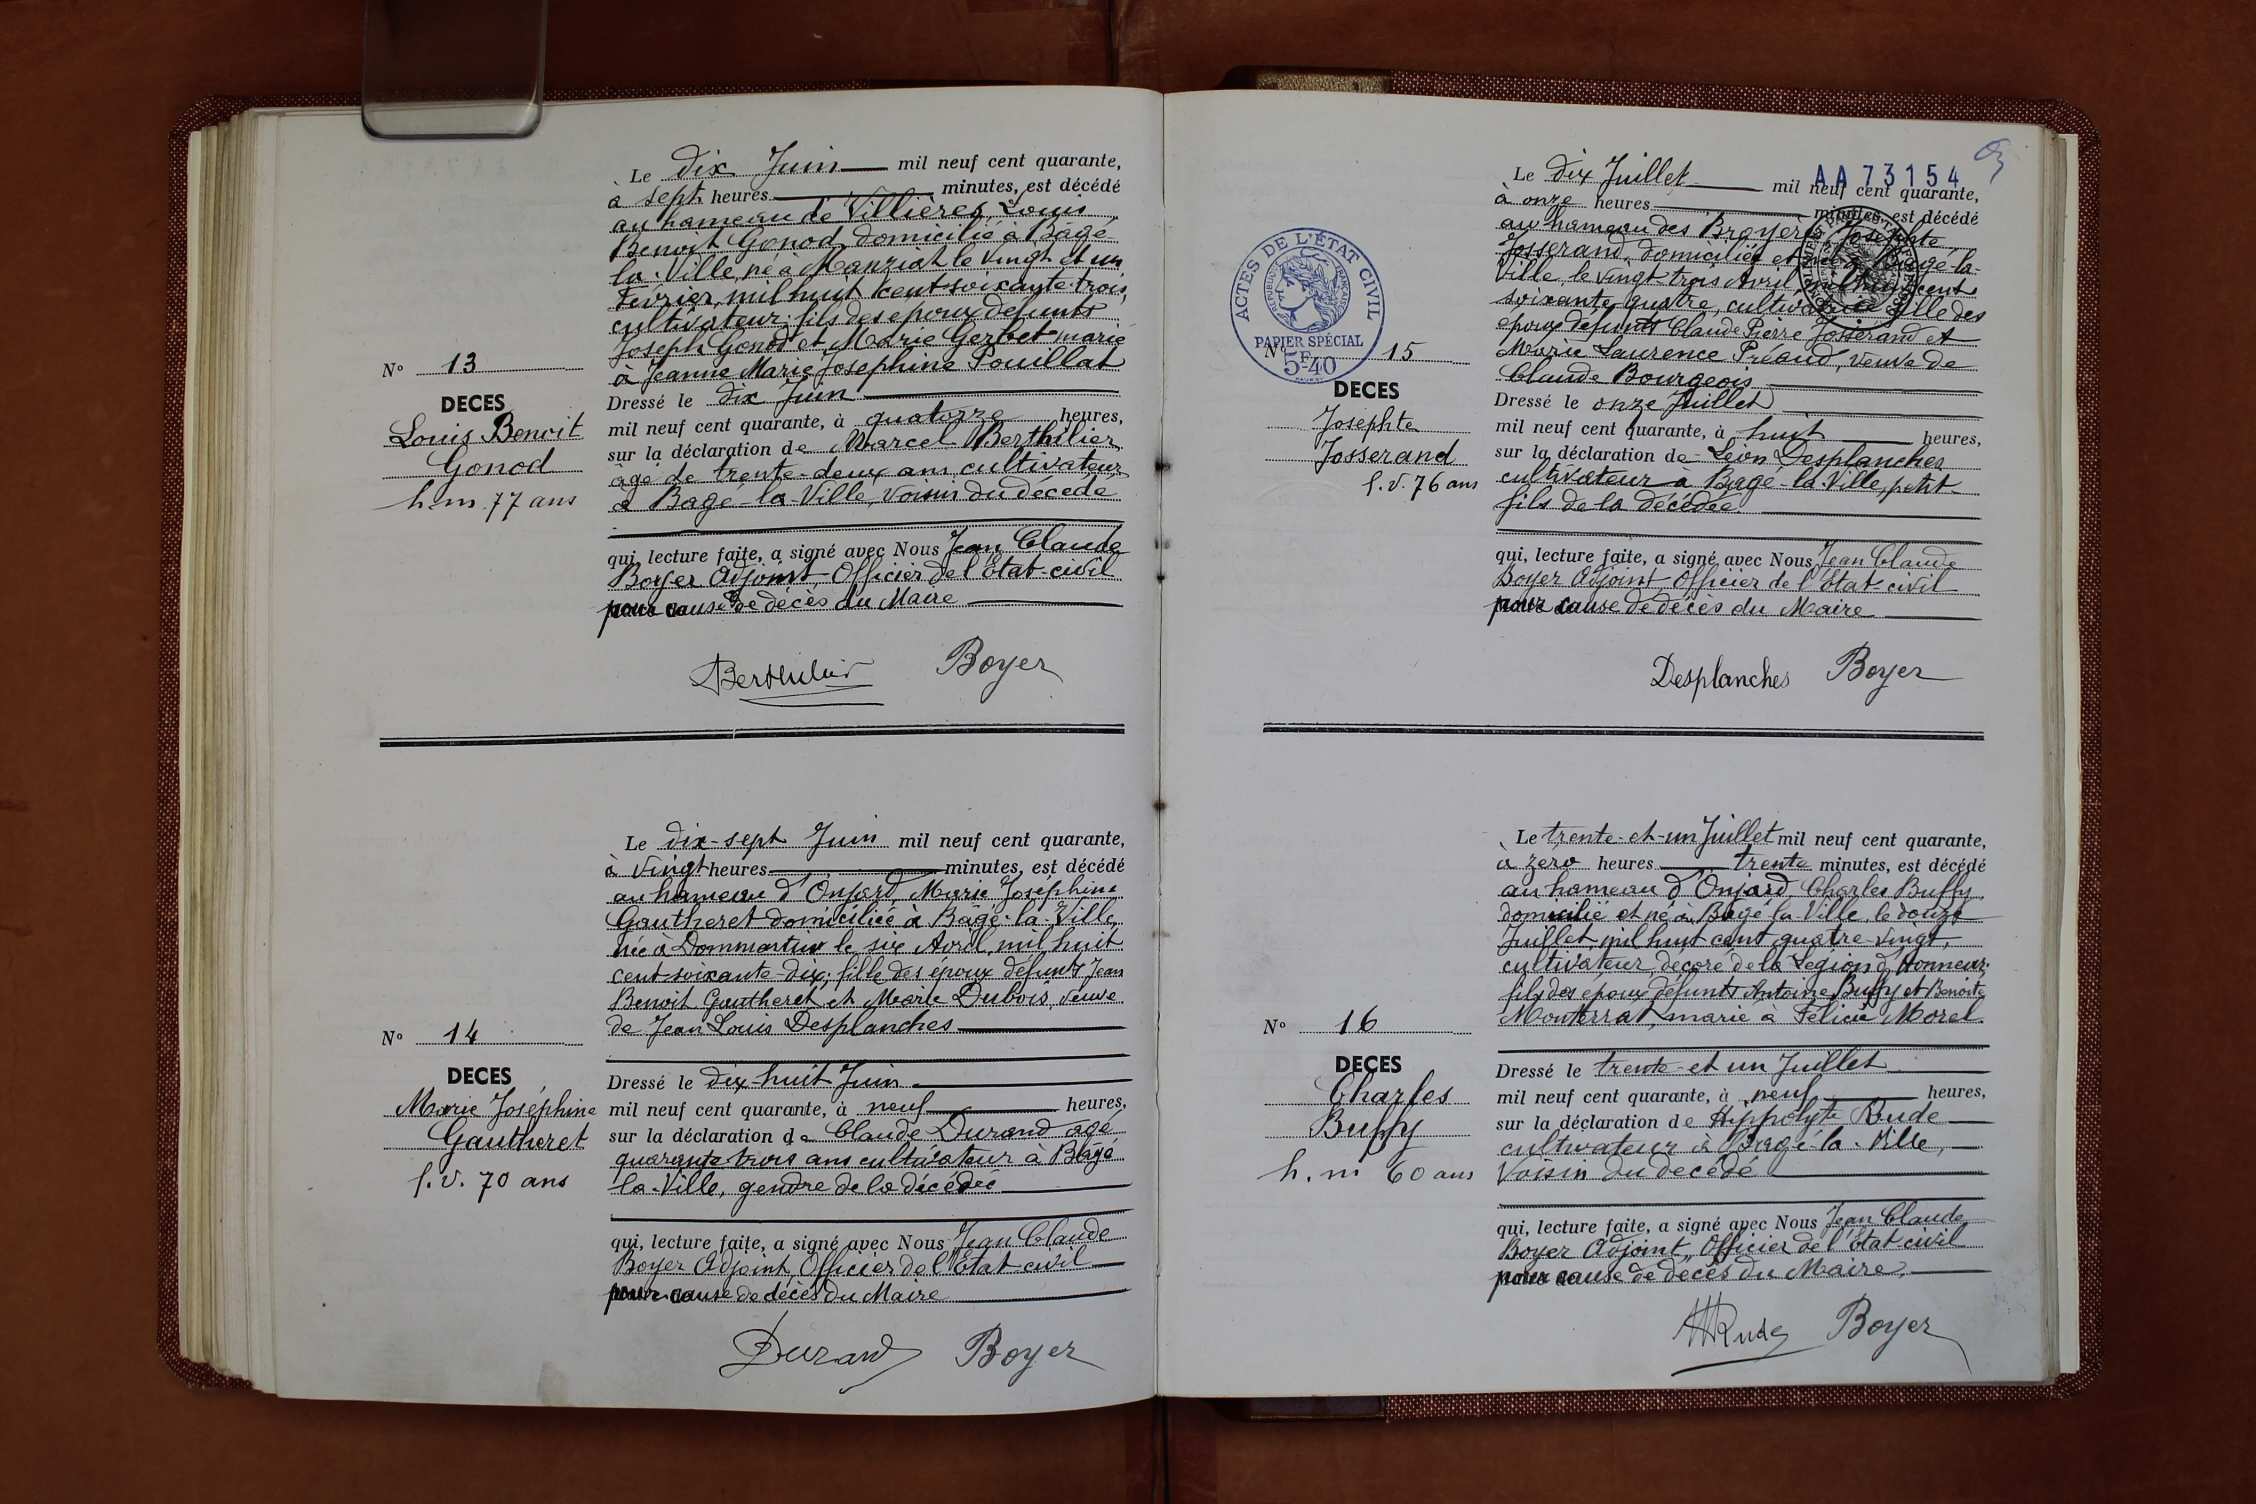 Le dix Juin mil neuf cent quarante,
à sept heures minutes, est décédé
au hameau de Villières, Louis
Benoit Gonod, domicilié à Bâgé-
la-Ville, né à Manziat le vingt et un
Février, mil huit cent soixante-trois,
cultivateur; fils des époux défunts
Joseph Gonod et Marie Gerbet marié
à Jeanne Marie Josephine Pouillat
N° 13
DECES
Louis Benoit
Gonod
h. m. 77 ans
Dressé le dix Juin
mil neuf cent quarante, à quatorze heures,
sur la déclaration de Marcel Berthilier
âgé de trente-deux ans cultivateur
à Bâgé-la-Ville, voisin du décédé
qui, lecture faite, a signé avec Nous Jean Claude
Boyer Adjoint, Officier de l'Etat-civil
pour cause de décès du Maire
Berthilier Boyer
Le dix-sept Juin mil neuf cent quarante,
à vingt heures minutes, est décédé
au hameau d'Onjard, Marie Joséphine
Gautheret domiciliée à Bâgé-la-Ville,
née à Dommartin le six Avril, mil huit
cent soixante-dix; fille des époux défunts Jean
Benoit Gautheret et Marie Dubois, veuve
de Jean Louis Desplanches
N° 14
DECES
Marie Joséphine
Gautheret
f. v. 70 ans
Dressé le dix-huit Juin
mil neuf cent quarante, à neuf heures,
sur la déclaration de Claude Durand âgé
quarante trois ans cultivateur à Bâgé
la-Ville, gendre de la décédée
qui, lecture faite, a signé avec Nous Jean Claude
Boyer Adjoint, Officier de l'Etat civil
pour cause de décès du Maire
Durand Boyer
AA 73154
Le dix Juillet mil neuf cent quarante,
à onze heures minutes, est décédé
au hameau des Broyères Josephte
Josserand, domiciliée et née à Bâgé-la-
Ville, le vingt-trois Avril, mil huit cent
soixante quatre, cultivatrice fille des
époux défunts Claude Pierre Josserand et
Marie Laurence Préaud, veuve de
Claude Bourgeois
ACTES DE L'ÉTAT CIVIL
RÉPUBLIQUE FRANÇAISE
PAPIER SPÉCIAL
5F-40
N° 15
DECES
Josephte
Josserand
f. v. 76 ans
Dressé le onze Juillet
mil neuf cent quarante, à huit heures,
sur la déclaration de Léon Desplanches
cultivateur à Bâgé-la-Ville, petit-
fils de la décédée
qui, lecture faite, a signé avec Nous Jean Claude
Boyer Adjoint Officier de l'Etat-civil
pour cause de décès du Maire
Desplanches Boyer
Le trente-et-un Juillet mil neuf cent quarante,
à zéro heures trente minutes, est décédé
au hameau d'Onjard Charles Buffy
domicilié et né à Bâgé la Ville, le douze
Juillet, mil huit cent quatre-vingt,
cultivateur, décoré de la Légion d'Honneur;
fils des époux défunts Antoine Buffy et Benoite
Monterrat, marié à Félicie Morel
N° 16
DECES
Charles
Buffy
h. m 60 ans
Dressé le trente-et un Juillet
mil neuf cent quarante, à neuf heures,
sur la déclaration de Hippolyte Rude
cultivateur à Bâgé-la-Ville,
voisin du décédé
qui, lecture faite, a signé avec Nous Jean Claude
Boyer Adjoint, Officier de l'Etat-civil
pour cause de décès du Maire,
Rude Boyer